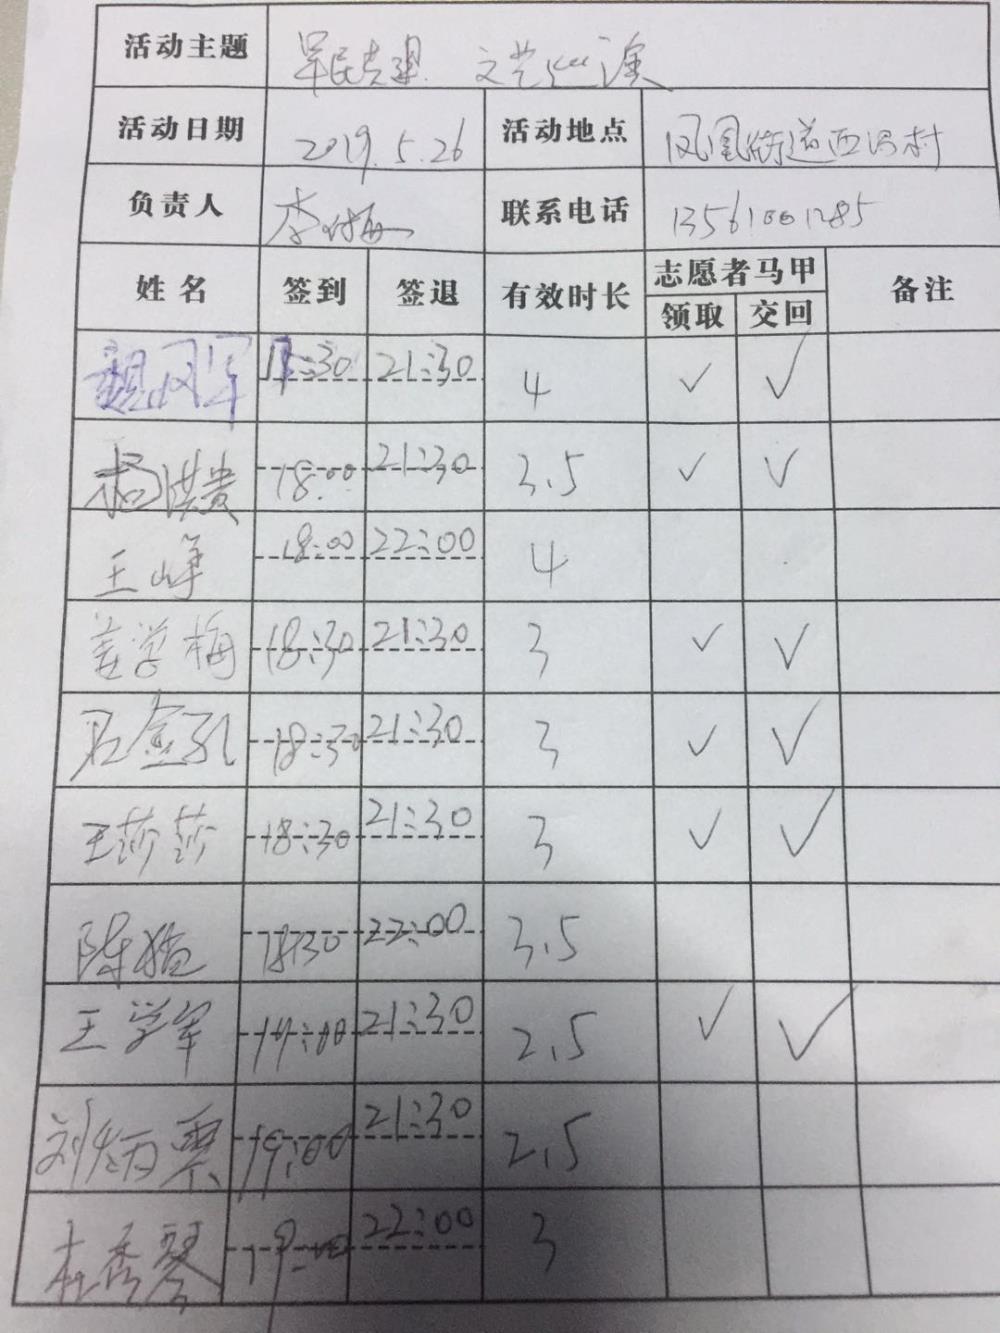 活动主题 军民共建 文艺汇演
活动日期 2019.5.26 活动地点 凤凰街道西沟村
负责人 李付梅 联系电话 13561001285
姓名 签到 签退 有效时长 志愿者马甲 备注
领取 交回
魏凤军 17:30 21:30 4 ✓ ✓
杨洪贵 18:00 21:30 3.5 ✓ ✓
王峰 18:00 22:00 4
姜学梅 18:30 21:30 3 ✓ ✓
石金孔 18:30 21:30 3 ✓ ✓
王莎莎 18:30 21:30 3 ✓ ✓
陈 18:30 22:00 3.5
王学军 19:00 21:30 2.5 ✓ ✓
刘炳票 19:00 21:30 2.5
杜秀琴 19:00 22:00 3